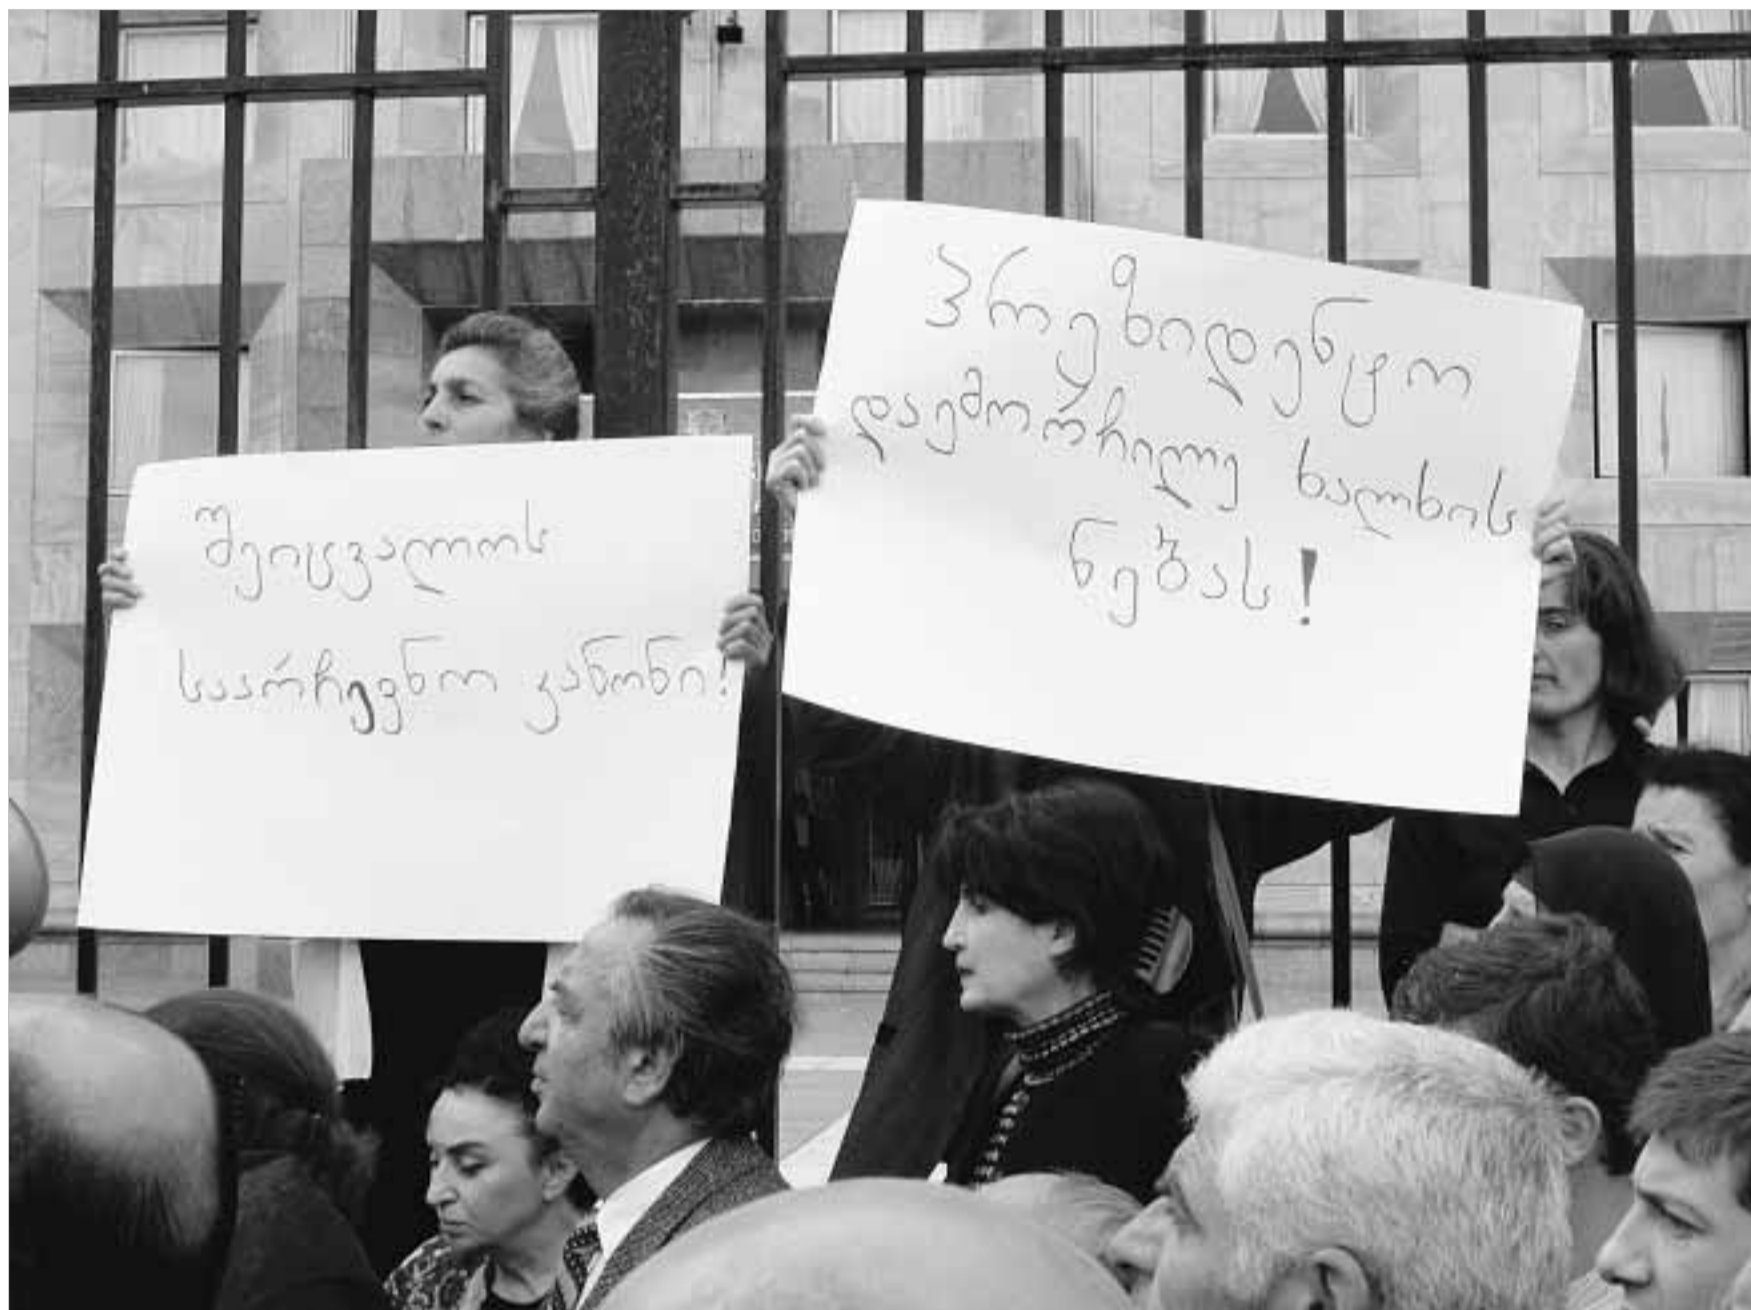 შეიცვალოს
საარჩევნო კანონი!
პრეზიდენტო
დაემორჩილე ხალხის
ნებას!